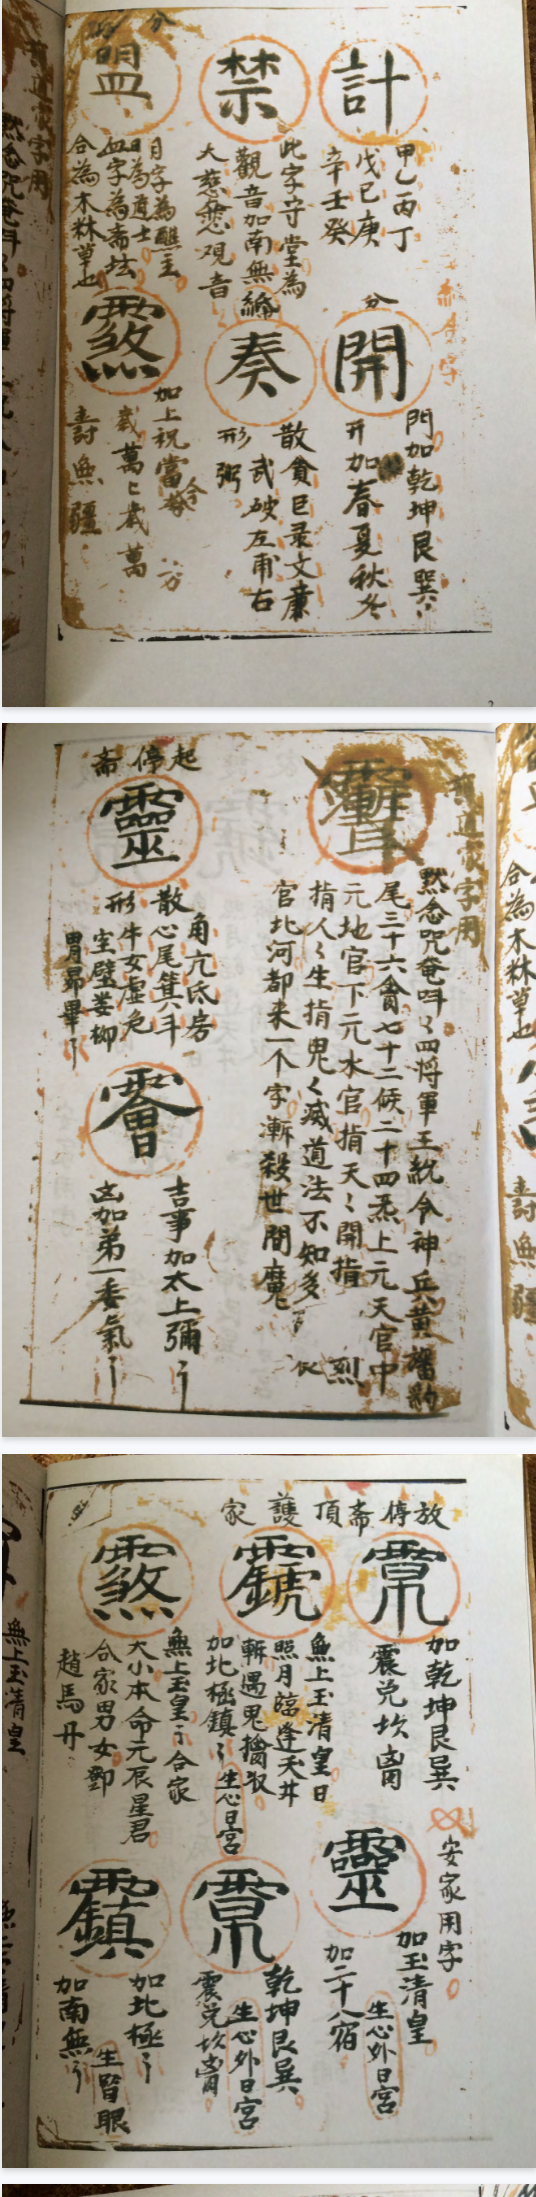 計
甲乙丙丁
戊己庚
辛壬癸
禁
此字守堂為
觀音加南無
大慈悲观音
盟
月字為醮主
日為道士
血字為斋坛
合為木林草也
分
開
門加乾坤艮巽
开加春夏秋冬
奏
散貪巨录文廉
武破左甫右
形
加上祝當
歲萬歲萬
壽無疆
2
道家字用
默念咒奄吽〻四將軍王統令神兵黄旛豹
尾三十六禽七十二候二十四炁上元天官中
元地官下元水官指天〻開指
指人〻生指鬼〻滅道法不知多
官北河都来一个字漸殺世間魔
起停斋
靈
角亢氐房
散心尾箕六斗
形牛女虚危
室壁娄柳
胃昴畢
吉事加太上彌
凶加第一委氣
放停斋頂護家
加乾坤艮巽
震兑坎离
無上玉清皇日
照月臨逢天井
斬遇鬼擒收
加北極鎮
生心日宮
無上玉皇
合家
大小本命元辰星君
合家男女鄧
趙馬丹
安家用字
靈
加玉清皇
生心外日宮
加二十八宿
乾坤艮巽
生心外日宮
震兑坎离
加北極
生習眼
加南無